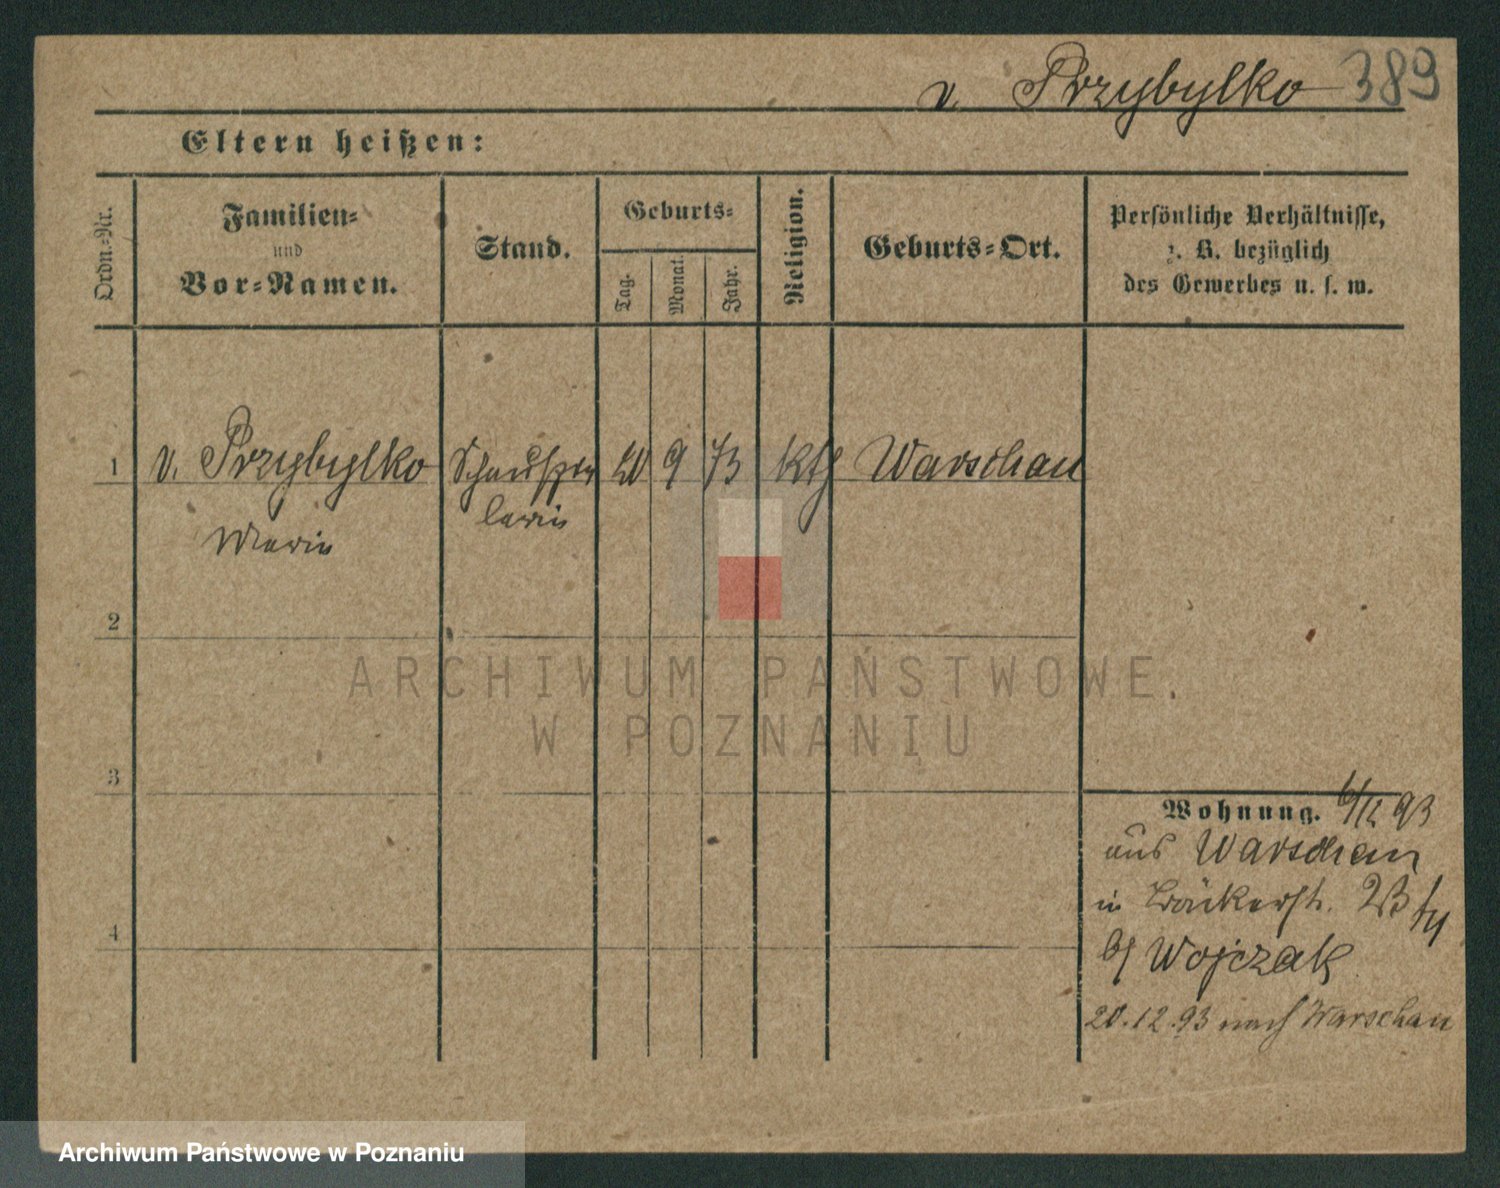 v. Przybylko 389
Eltern heißen:
Ordn.-Nr.
Familien-
und
Vor-Namen.
Stand.
Geburts-
Tag.
Monat.
Jahr.
Religion.
Geburts-Ort.
Persönliche Verhältnisse,
z. B. bezüglich
des Gewerbes u. s. w.
1 v. Przybylko Schauspie 20 9 73 kth Warschau
lerin
Marie
2
ARCHIWUM PAŃSTWOWE
W POZNANIU
3
Wohnung. 6/12 93
aus Warschau
in Bäckerstr. 23
bei Wojczak
4
20.12.93 nach Warschau
Archiwum Państwowe w Poznaniu